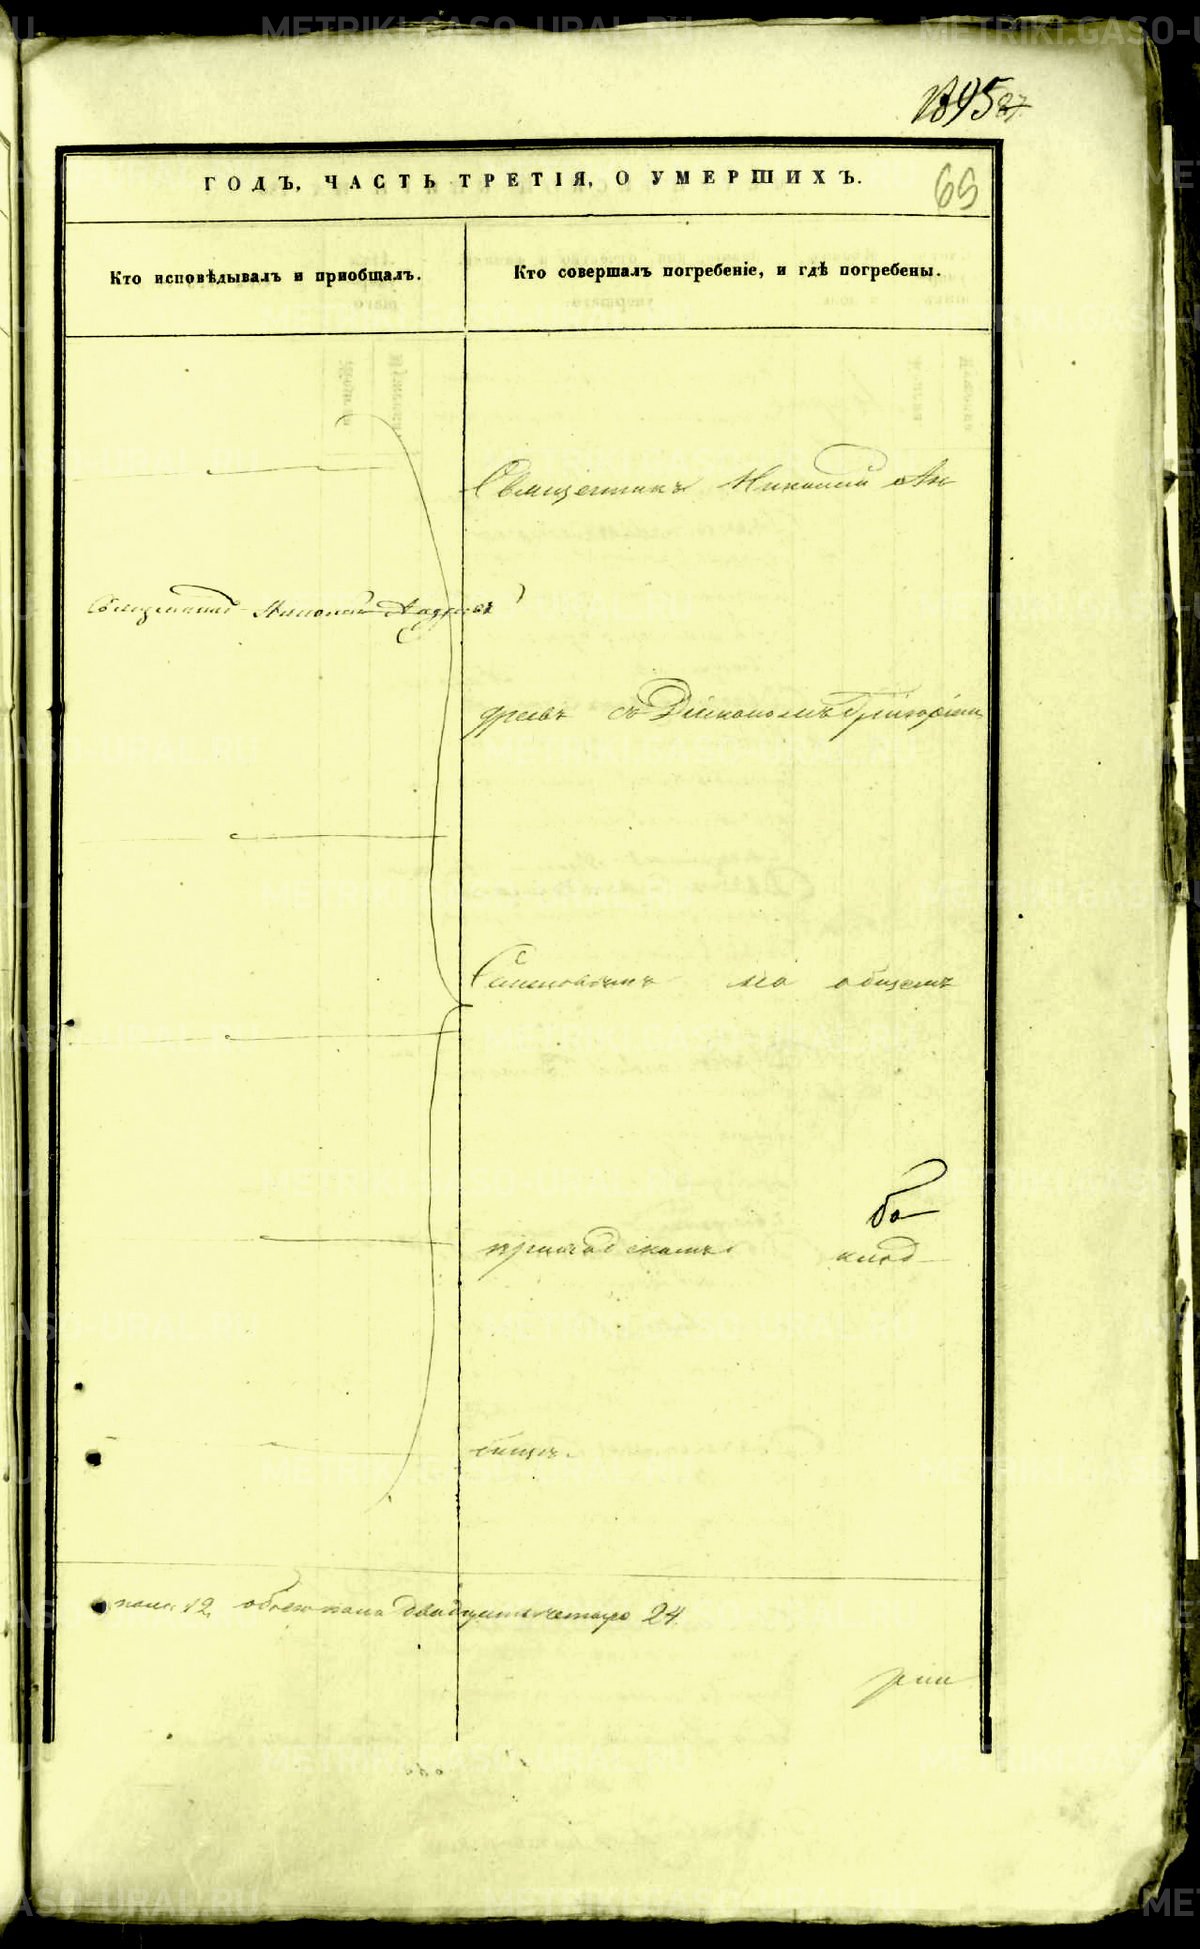 1895 87
ГОДЪ, ЧАСТЬ ТРЕТІЯ, О УМЕРШИХЪ.
69
Кто исповѣдывалъ и приобщалъ.
Кто совершалъ погребеніе, и гдѣ погребены.
Священникъ Николай Ан
Священникъ Николай Андреевъ
дреевъ съ Діакономъ Григоріем
на общемъ
приходскомъ клад
бищѣ.
пола 12, обоего пола двадцать четыре 24.
METRIKI.GASO-URAL.RU